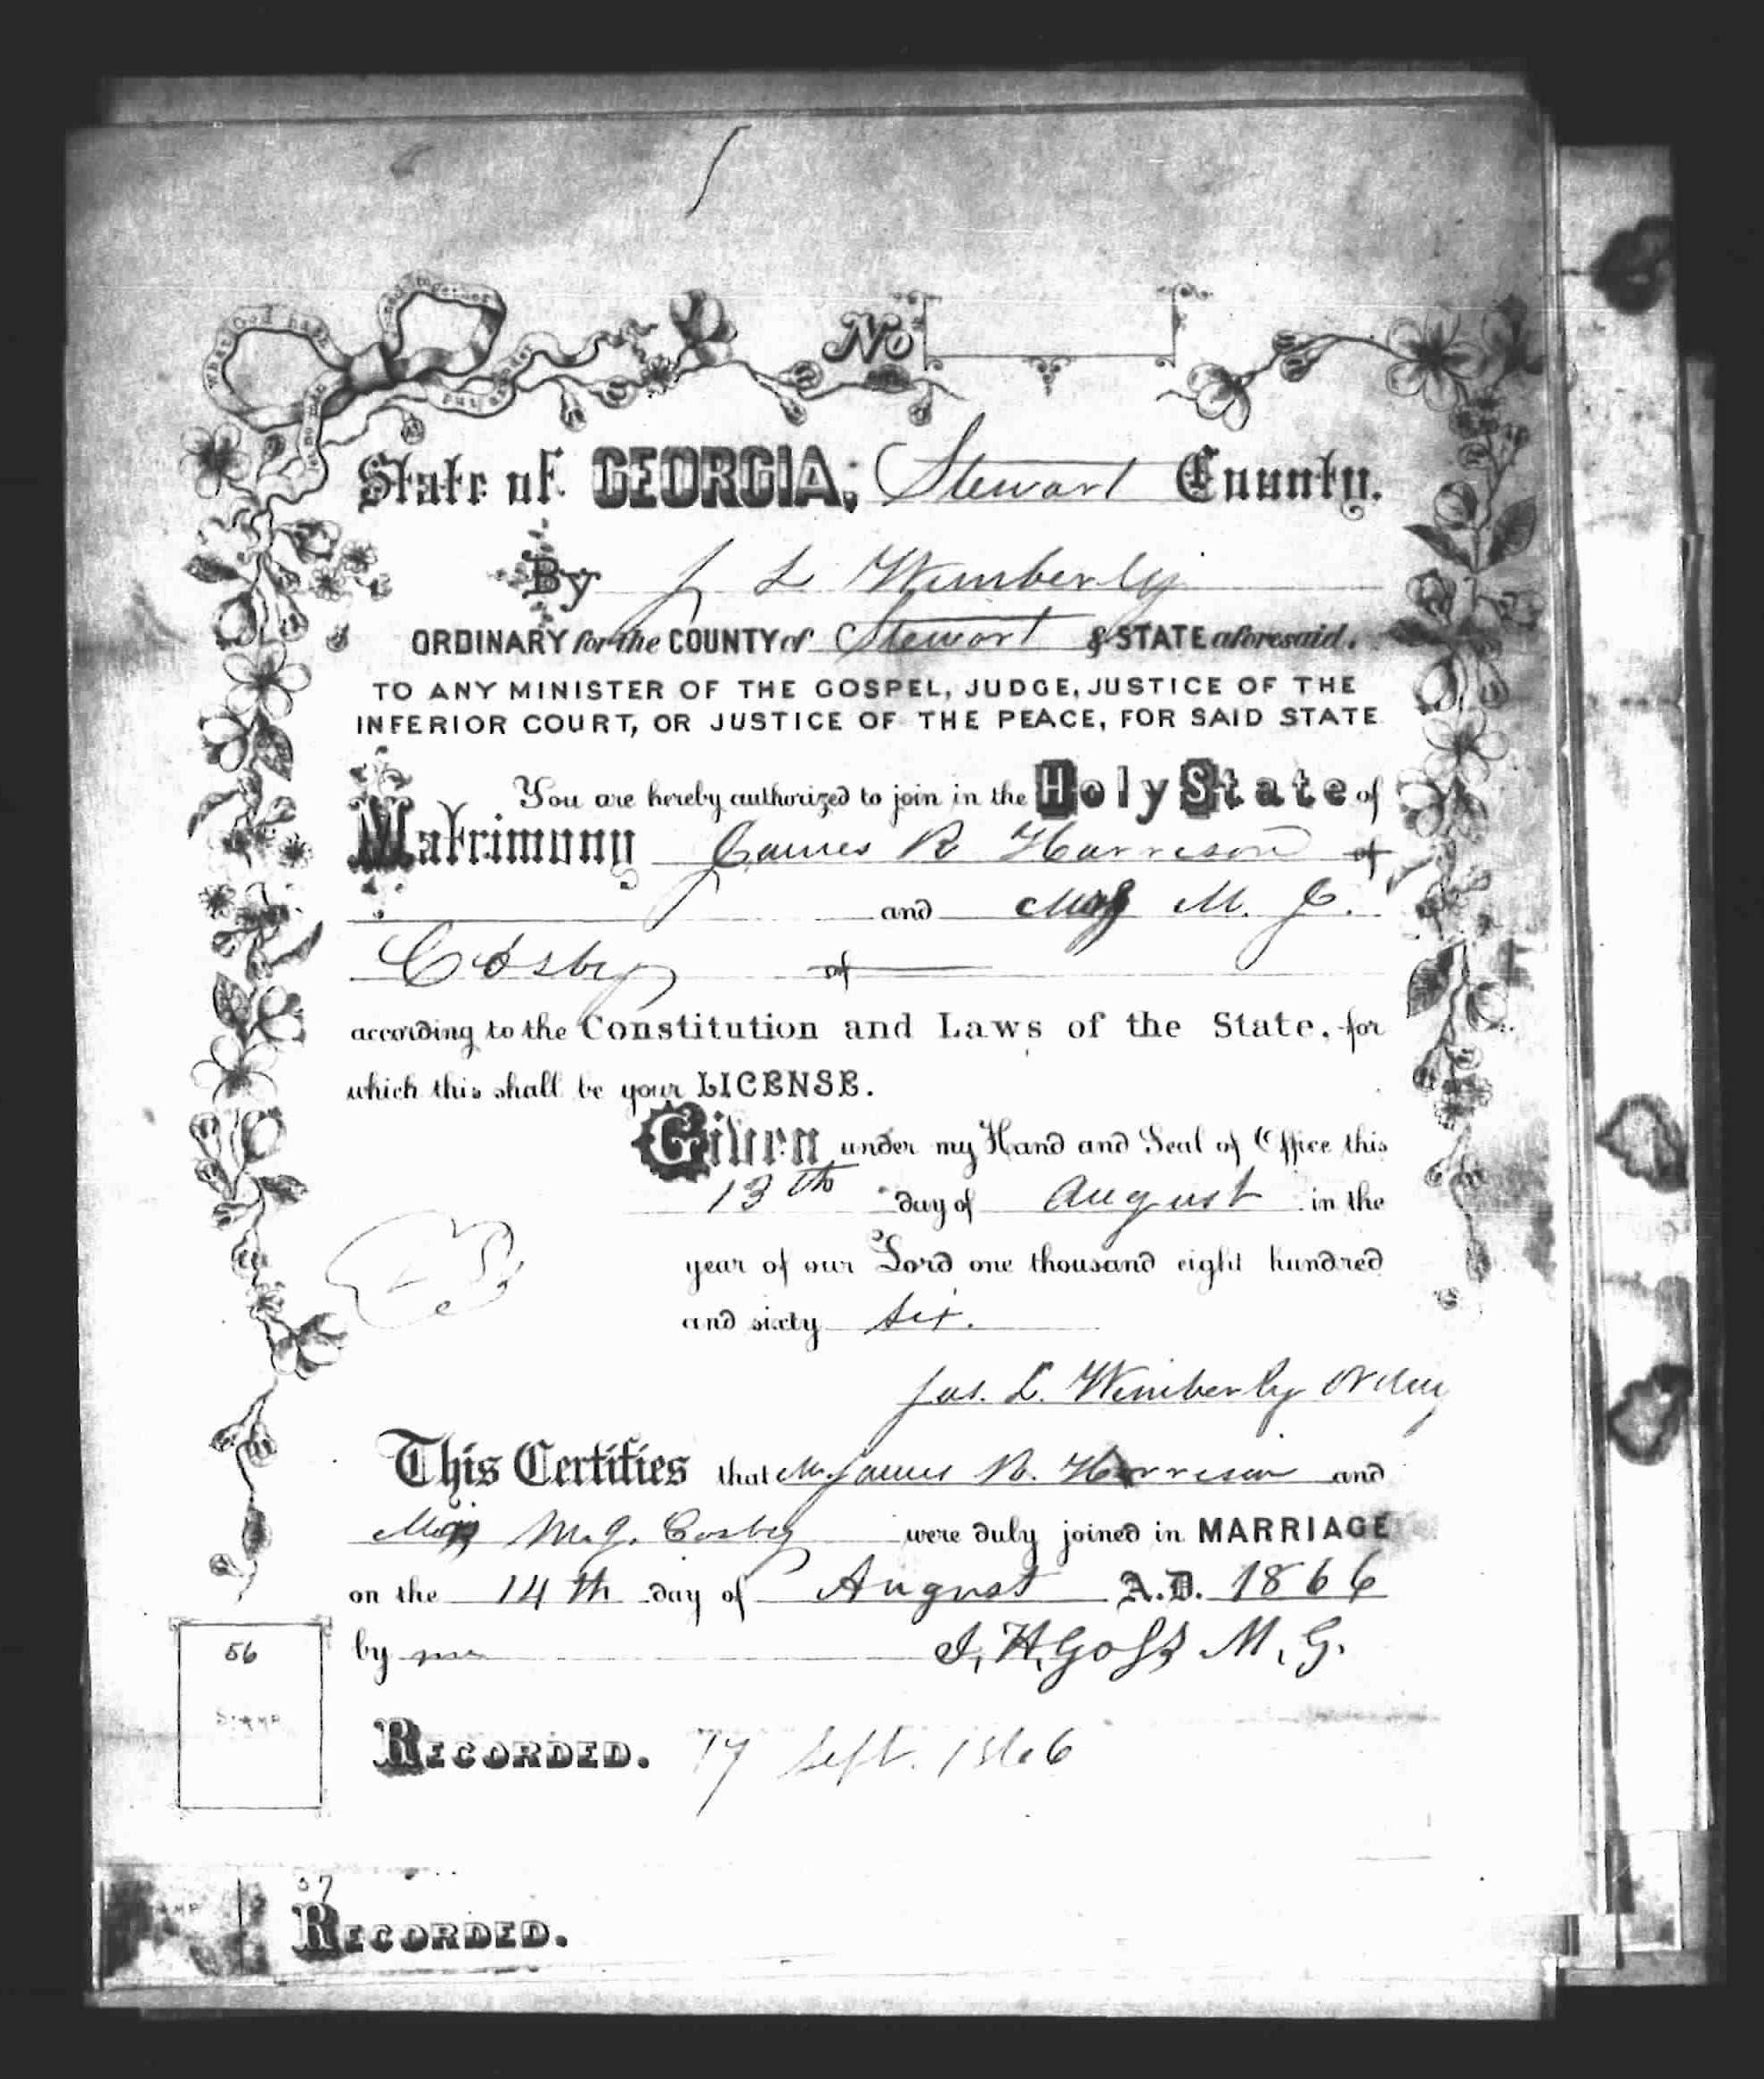 What God hath joined together
let no man put asunder
No
State of GEORGIA, Stewart County.
By J L Wimberly
ORDINARY for the COUNTY of Stewart & STATE aforesaid.
TO ANY MINISTER OF THE GOSPEL, JUDGE, JUSTICE OF THE
INFERIOR COURT, OR JUSTICE OF THE PEACE, FOR SAID STATE
You are hereby authorized to join in the Holy State of
Matrimony James R Harrison of
and M. J.
Cosby of
according to the Constitution and Laws of the State, for
which this shall be your LICENSE.
Given under my Hand and Seal of Office this
13th day of August in the
year of our Lord one thousand eight hundred
and sixty six.
Jas. L. Wimberly Ordny
This Certifies that Mr. James R. Harrison and
M. J. Cosby were duly joined in MARRIAGE
on the 14th day of August A.D. 1866
56
by me J. H. Goss M. G.
STAMP
RECORDED. Sept. 1866
57
RECORDED.